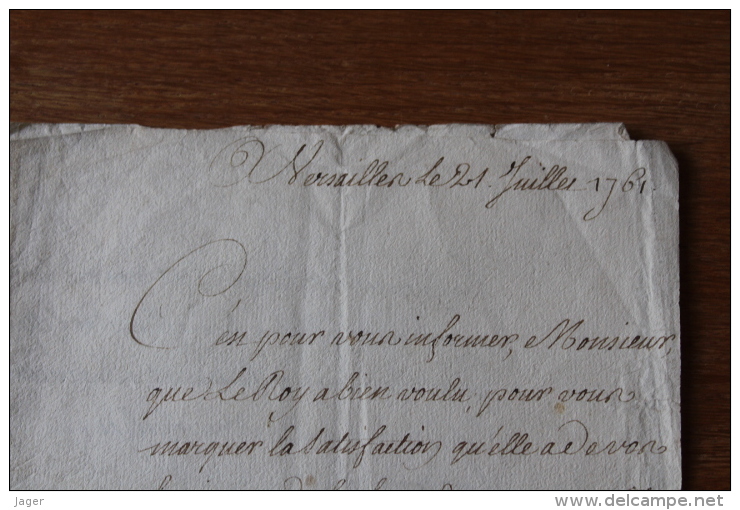 Versailles le 21 Juillet 1761.
C'est pour vous informer, Monsieur,
que Le Roy a bien voulu, pour vous
marquer la satisfaction qu'elle a de vos
jager
www.delcampe.net